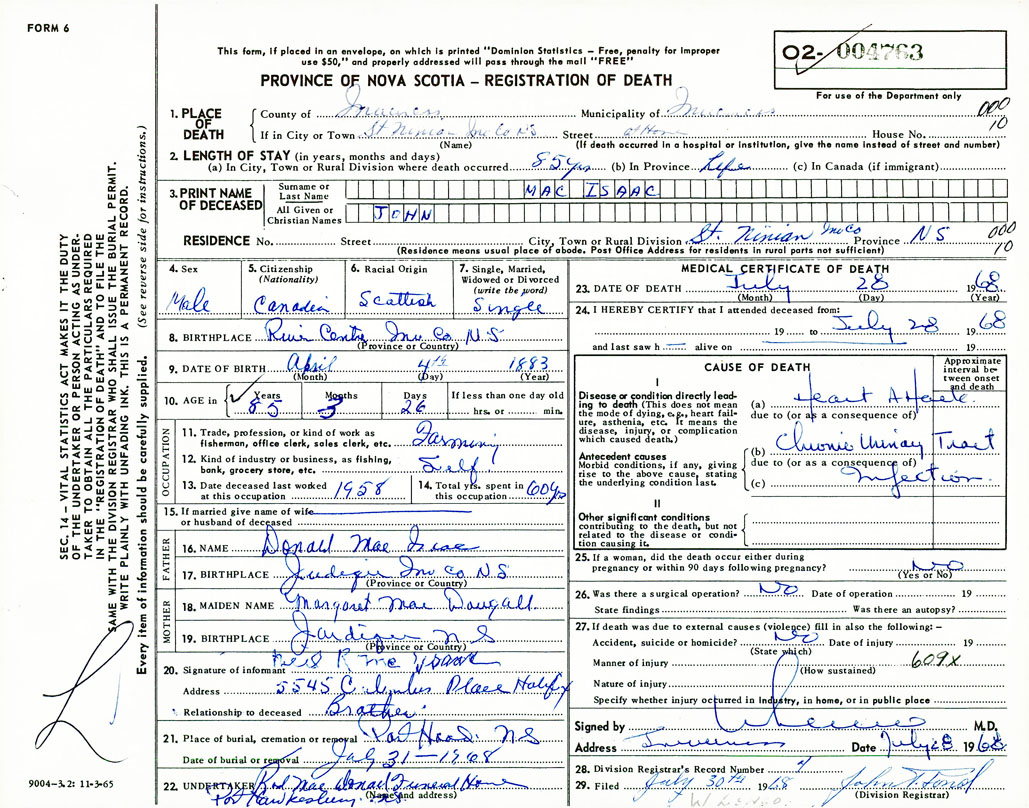 FORM 6
This form, if placed in an envelope, on which is printed "Dominion Statistics – Free, penalty for improper
use $50," and properly addressed will pass through the mail "FREE"
PROVINCE OF NOVA SCOTIA – REGISTRATION OF DEATH
02- 004763
For use of the Department only
SEC. 14 – VITAL STATISTICS ACT MAKES IT THE DUTY
OF THE UNDERTAKER OR PERSON ACTING AS UNDER-
TAKER TO OBTAIN ALL THE PARTICULARS REQUIRED
IN THE "REGISTRATION OF DEATH" AND TO FILE THE
SAME WITH THE DIVISION REGISTRAR WHO SHALL ISSUE THE BURIAL PERMIT.
WRITE PLAINLY WITH UNFADING INK. THIS IS A PERMANENT RECORD.
Every item of information should be carefully supplied. (See reverse side for instructions.)
1. PLACE OF DEATH
County of Inverness Municipality of Inverness 000
If in City or Town St Ninian Inv Co NS Street at Home House No. 10
(Name) (If death occurred in a hospital or institution, give the name instead of street and number)
2. LENGTH OF STAY (in years, months and days)
(a) In City, Town or Rural Division where death occurred 85 yrs (b) In Province Life (c) In Canada (if immigrant)
3. PRINT NAME OF DECEASED
Surname or Last Name MAC ISAAC
All Given or Christian Names JOHN
RESIDENCE No. Street City, Town or Rural Division St. Ninian Inv Co Province NS 000
(Residence means usual place of abode. Post Office Address for residents in rural parts not sufficient) 10
4. Sex Male
5. Citizenship (Nationality) Canadian
6. Racial Origin Scottish
7. Single, Married, Widowed or Divorced (write the word) Single
8. BIRTHPLACE River Centre Inv Co N.S
(Province or Country)
9. DATE OF BIRTH April 4th 1883
(Month) (Day) (Year)
10. AGE in Years 85 Months 3 Days 26 If less than one day old hrs. or min.
OCCUPATION
11. Trade, profession, or kind of work as fisherman, office clerk, sales clerk, etc. Farming
12. Kind of industry or business, as fishing, bank, grocery store, etc. Self
13. Date deceased last worked at this occupation 1958
14. Total yrs. spent in this occupation 60 yrs
15. If married give name of wife or husband of deceased
FATHER
16. NAME Donald Mac Isaac
17. BIRTHPLACE Inv Co NS
(Province or Country)
MOTHER
18. MAIDEN NAME Margaret Mac Dougall
19. BIRTHPLACE N S
(Province or Country)
20. Signature of informant Neil R Mc Isaac
Address 5545 Columbus Place Halifax
Relationship to deceased Brother
21. Place of burial, cremation or removal Port Hood N S
Date of burial or removal July 31 – 1968
22. UNDERTAKER Rod Mac Donald Funeral Home
Port Hawkesbury. NS.
(Name and address)
MEDICAL CERTIFICATE OF DEATH
23. DATE OF DEATH July 28 1968
(Month) (Day) (Year)
24. I HEREBY CERTIFY that I attended deceased from:
19 to July 28 1968
and last saw h alive on 19
CAUSE OF DEATH
Approximate interval between onset and death
I
Disease or condition directly leading to death (This does not mean the mode of dying, e.g., heart failure, asthenia, etc. It means the disease, injury, or complication which caused death.)
(a) Heart Attack
due to (or as a consequence of)
Antecedent causes
Morbid conditions, if any, giving rise to the above cause, stating the underlying condition last.
(b) Chronic Urinary Tract
due to (or as a consequence of)
(c) Infection.
II
Other significant conditions contributing to the death, but not related to the disease or condition causing it.
25. If a woman, did the death occur either during
pregnancy or within 90 days following pregnancy? No
(Yes or No)
26. Was there a surgical operation? No Date of operation 19
State findings Was there an autopsy?
27. If death was due to external causes (violence) fill in also the following: –
Accident, suicide or homicide? No Date of injury 19
(State which)
Manner of injury 609X
(How sustained)
Nature of injury
Specify whether injury occurred in Industry, in home, or in public place
Signed by M.D.
Address Inverness Date July 28 1968
28. Division Registrar's Record Number
29. Filed July 30th 1968
(Division Registrar)
9004-3.2: 11-3-65